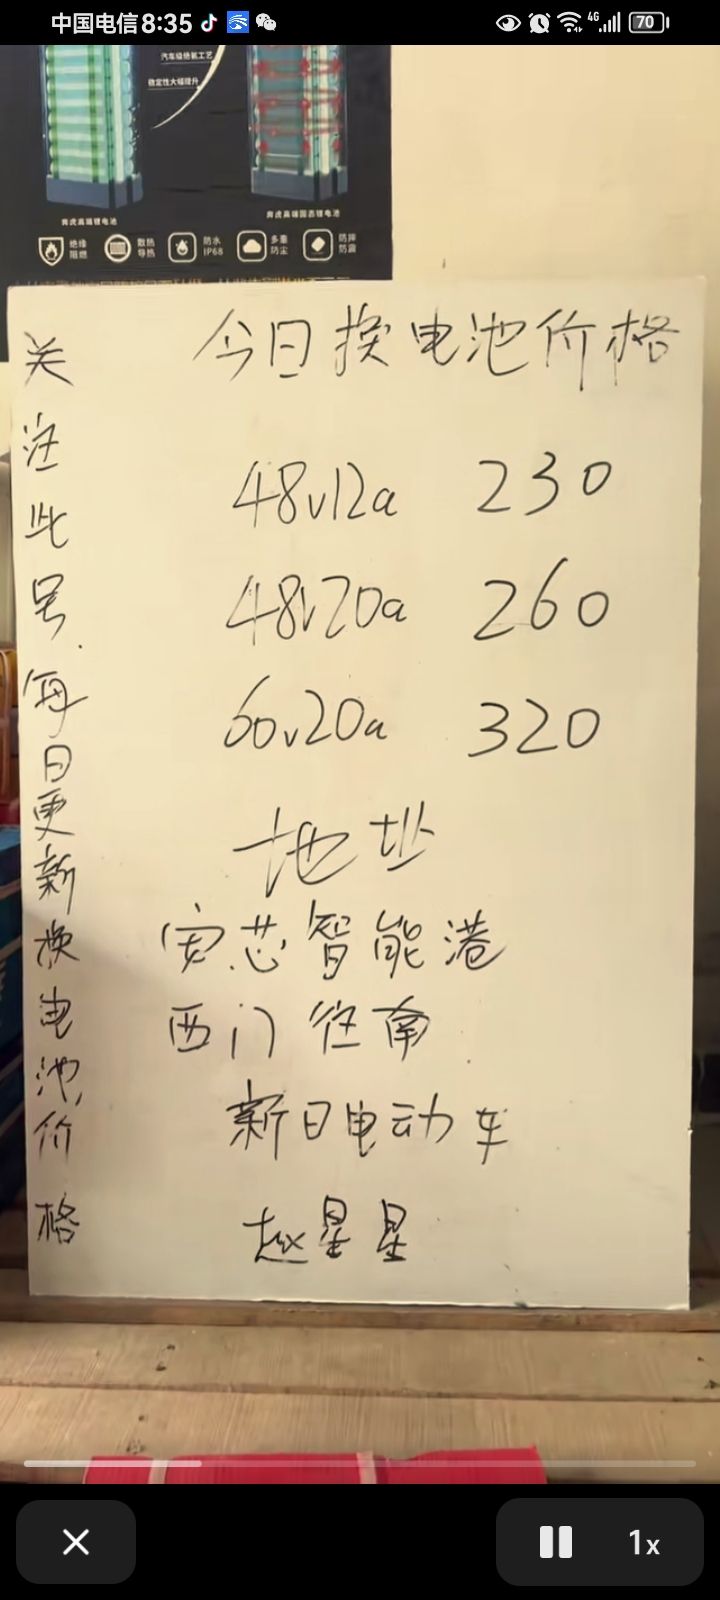 中国电信 8:35
4G
70
汽车级绝氧工艺
稳定性大幅提升
奔虎高端锂电池
奔虎高端固态锂电池
绝缘
阻燃
散热
导热
防水
IP68
多重
防尘
防摔
防震
今日换电池价格
48v12a 230
48v20a 260
60v20a 320
地址
安芯智能港
西门往南
新日电动车
赵星星
关注此号.每日更新换电池价格
1x